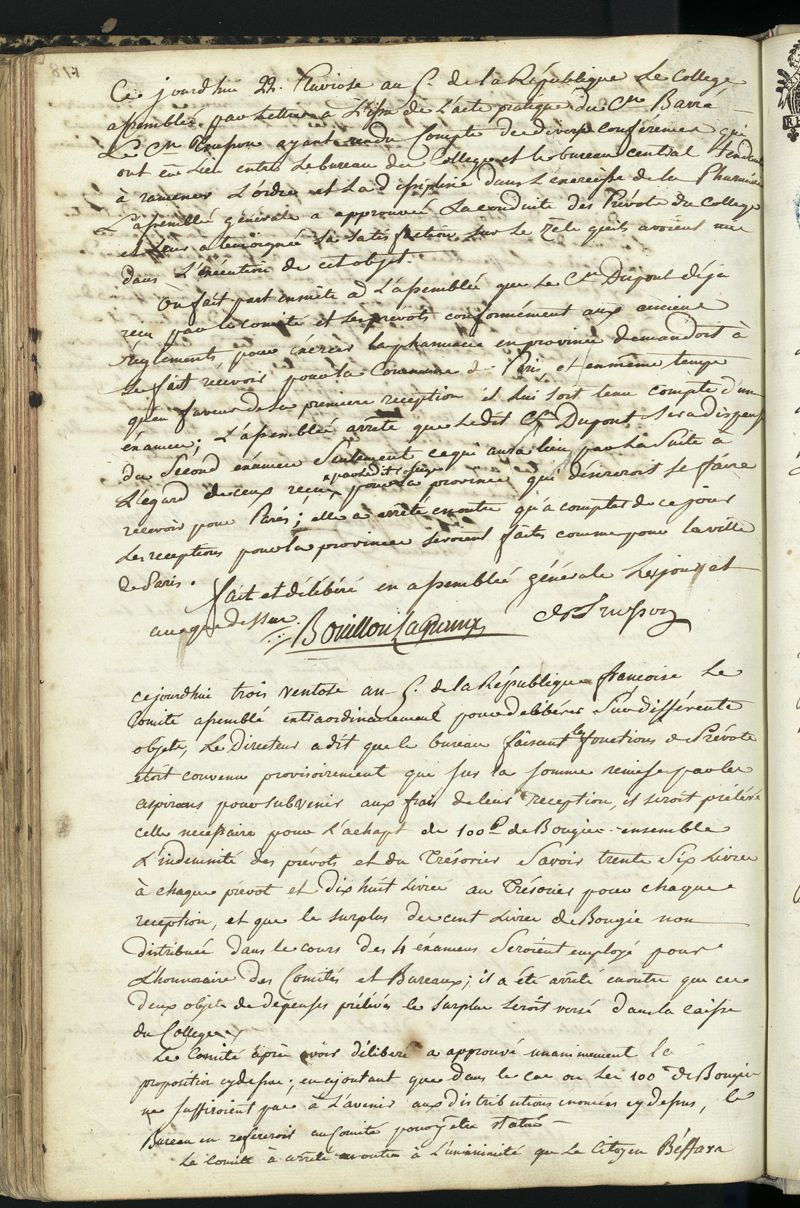 Ce jourdhui 22. Pluviose an 5. de la République Le College
assemblée par lettres a L'issue de L'acte pratique du Cen Barra
Le Cen Trusson ayant rendu Compte de diverses conférences qui
ont eu Lieu entre Le bureau du College et le bureau central tendant
à ramener L'ordre et La discipline dans L'exercice de la Pharmacie
L'assemblé générale a approuvée La conduite des Prévots du College
et Leur a temoignée sa satisfaction sur Le zele quils avoient mis
dans L'exécution de cet objet.
On fait part ensuite a L'assemblée que Le Cen Dupont déja
recu par le comité et Les prévots conformément aux anciens
réglements pour exercer la pharmacie en province demandoit à
Se fait recevoir pour la Commune de Paris, et en même temps
qu'en faveur de Sa premiere reception il Lui soit tenu compte d'un
éxamen; L'assemblée arrête que Ledit Cen Dupont Sera dispensé
du Second éxamen Seulement ce qui aura lieu par La Suite a
L'egard de ceux recus pour La province qui désireroit Se faire
recevoir pour Paris; elle a arrêté en outre qu'a compter de ce jour
Les receptions pour la province Seroient faites comme pour la ville
de Paris.
fait et délibéré en assemblée générale Les jour et
an que dessus.
Bouillon Lagrange Trusson
cejourdhui trois ventose an 5. de la République françoise Le
Comité assemblé extraordinairement pour delibérer Sur différents
objets, Le Directeur a dit que le bureau faisant les fonctions de Prévots
etoit convenu provisoirement que sur la somme remise par les
aspirans pour subvenir aux frais de leur reception, il seroit prélévé
celle necessaire pour L'achapt de 100 l. de Bougies ensemble
L'indemnité des prévots et du Trésorier Savoir trente Six Livres
à chaque prévot et dix huit Livres au Trésorier pour chaque
reception, et que le surplus de cent Livres de Bougie non
distribuée dans le cours des 4 éxamens Seroient employé pour
L'honoraire des Comités et Bureaux; il a été arrêté en outre que ces
deux objets de depenses prélévés le surplus Seroit versé dans la caisse
du College.
Le Comité après avoir délibéré a approuvé unanimement la
proposition cydessus; en ajoutant que dans le cas ou Les 100 l. de Bougies
ne suffiroient pas à L'avenir aux distributions enoncées cy dessus, le
Bureau en refereroit au Comité pour y être statué
Le Comité a arrêté en outre à L'unanimité que Le Citoyen Béffara